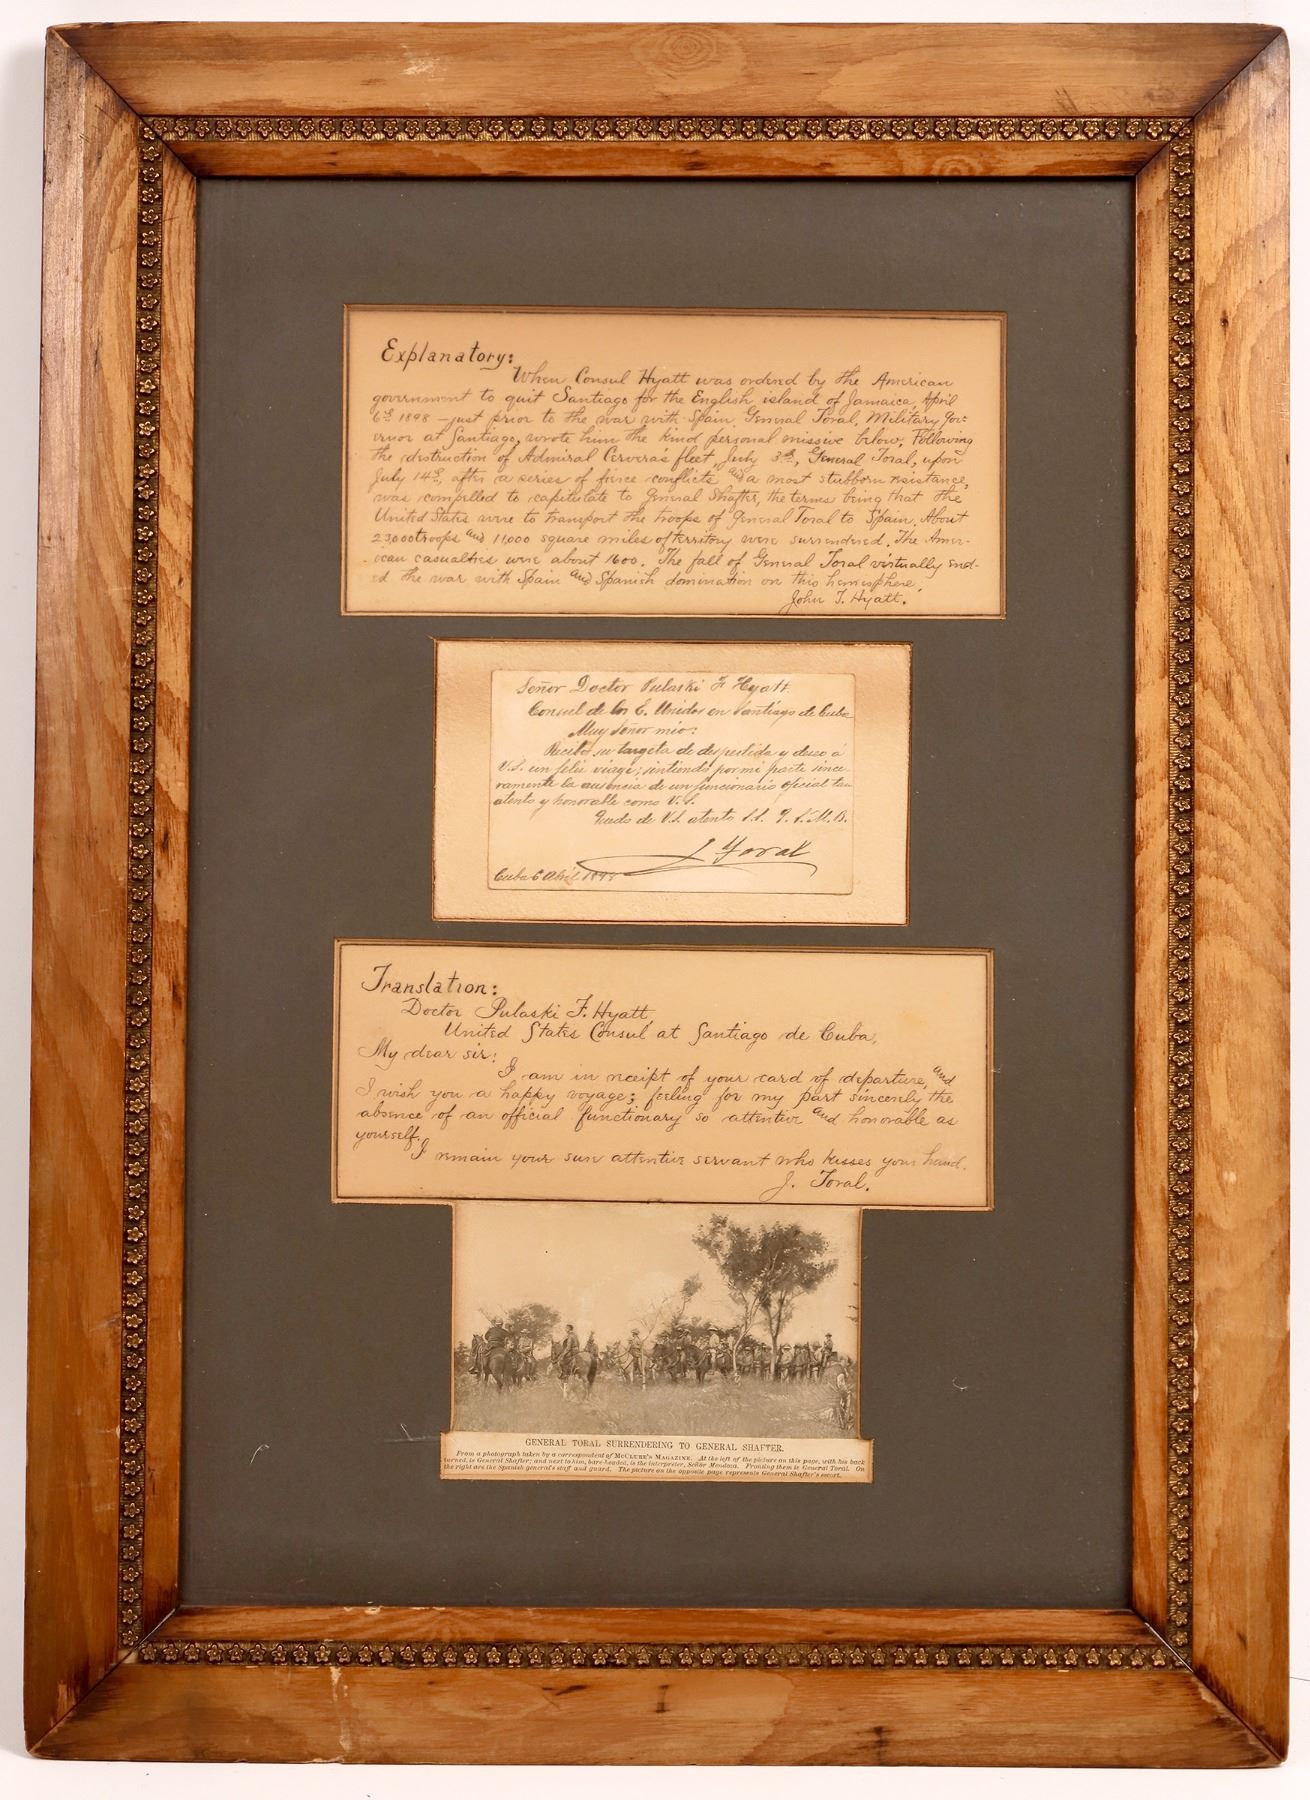 Explanatory:
When Consul Hyatt was ordered by the American
government to quit Santiago for the English island of Jamaica, April
6th 1898 – just prior to the war with Spain, General Toral, Military Gov-
ernor at Santiago, wrote him the kind personal missive below. Following
the destruction of Admiral Cervera's fleet, July 3d, General Toral, upon
July 14th, after a series of fierce conflicts and a most stubborn resistance,
was compelled to capitulate to General Shafter, the terms being that the
United States were to transport the troops of General Toral to Spain. About
23,000 troops and 11,000 square miles of territory were surrendered. The Amer-
ican casualties were about 1600. The fall of General Toral virtually end-
ed the war with Spain and Spanish domination on this hemisphere.
John T. Hyatt.
Señor Doctor Pulaski F Hyatt
Consul de los E. Unidos en Santiago de Cuba
Muy Señor mio:
Recibo su targeta de despedida y deseo á
V.S. un feliz viage; sintiendo por mi parte since-
ramente la ausencia de un funcionario oficial tan
atento y honorable como V.S.
Quedo de V.S. atento S.S. q. S.M.B.
J Toral
Cuba 6 Abril 1898
Translation:
Doctor Pulaski F. Hyatt,
United States Consul at Santiago de Cuba,
My dear sir:
I am in receipt of your card of departure, and
I wish you a happy voyage; feeling for my part sincerely the
absence of an official functionary so attentive and honorable as
yourself.
I remain your sure attentive servant who kisses your hand.
J. Toral.
GENERAL TORAL SURRENDERING TO GENERAL SHAFTER.
From a photograph taken by a correspondent of MCCLURE'S MAGAZINE. At the left of the picture on this page, with his back
turned, is General Shafter; and next to him, bare-headed, is the interpreter, Señor Mendoza. Fronting them is General Toral. On
the right are the Spanish general's staff and guard. The picture on the opposite page represents General Shafter's escort.